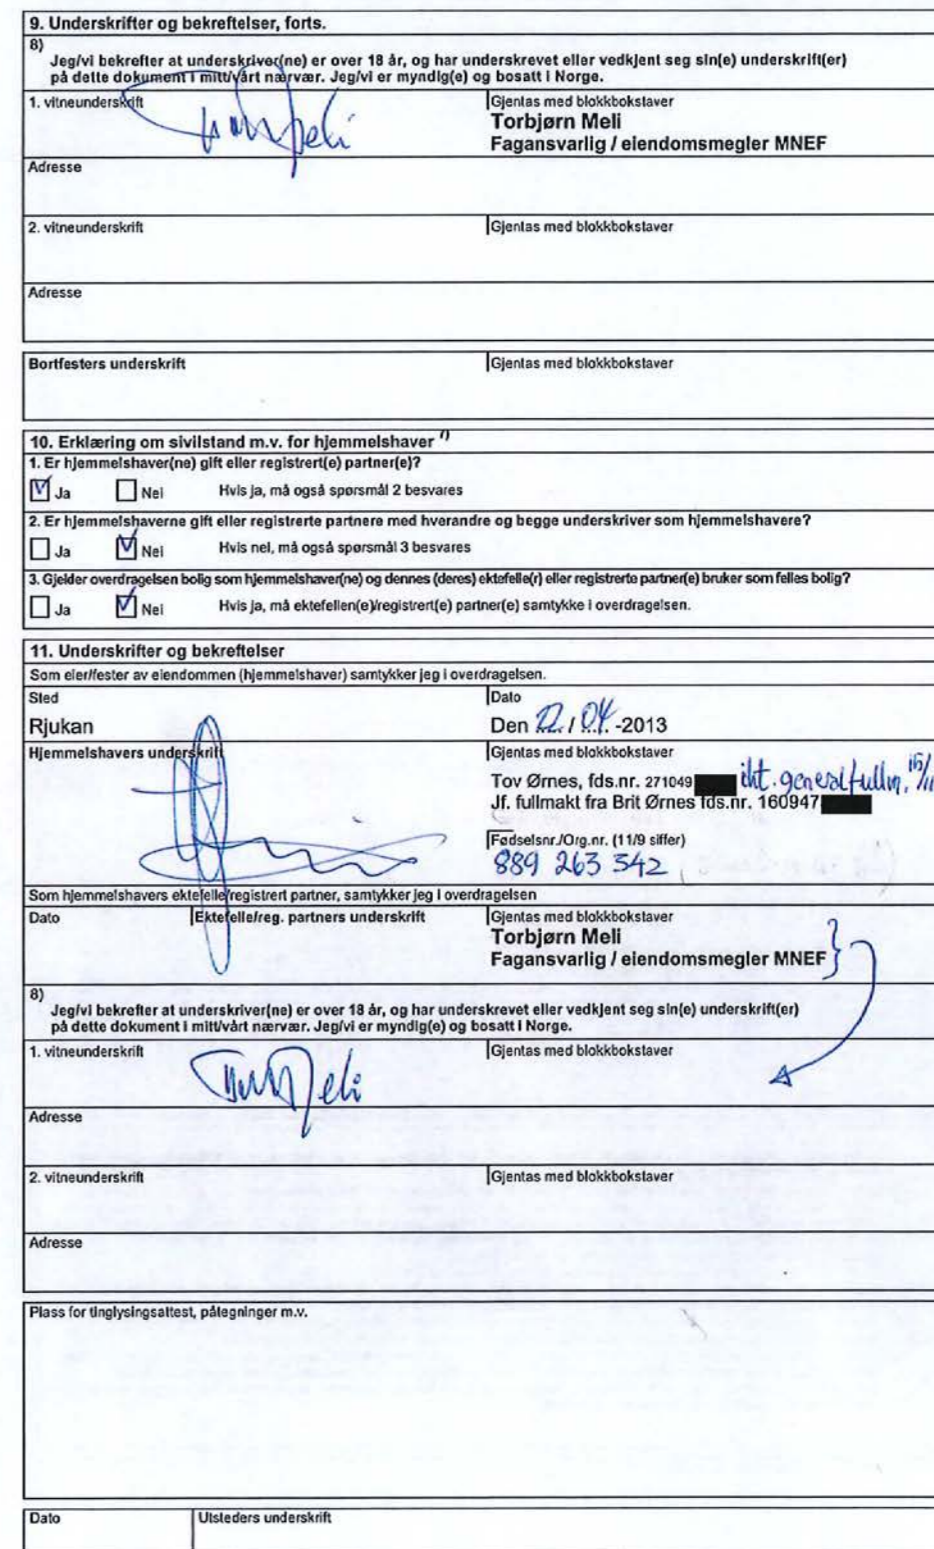 9. Underskrifter og bekreftelser, forts.
8)
Jeg/vi bekrefter at underskriver(ne) er over 18 år, og har underskrevet eller vedkjent seg sin(e) underskrift(er)
på dette dokument i mitt/vårt nærvær. Jeg/vi er myndig(e) og bosatt i Norge.
1. vitneunderskrift
Gjentas med blokkbokstaver
Torbjørn Meli
Fagansvarlig / eiendomsmegler MNEF
Adresse
2. vitneunderskrift
Gjentas med blokkbokstaver
Adresse
Bortfesters underskrift
Gjentas med blokkbokstaver
10. Erklæring om sivilstand m.v. for hjemmelshaver 7)
1. Er hjemmelshaver(ne) gift eller registrert(e) partner(e)?
Ja Nei Hvis ja, må også spørsmål 2 besvares
2. Er hjemmelshaverne gift eller registrerte partnere med hverandre og begge underskriver som hjemmelshavere?
Ja Nei Hvis nei, må også spørsmål 3 besvares
3. Gjelder overdragelsen bolig som hjemmelshaver(ne) og dennes (deres) ektefelle(r) eller registrerte partner(e) bruker som felles bolig?
Ja Nei Hvis ja, må ektefellen(e)/registrert(e) partner(e) samtykke i overdragelsen.
11. Underskrifter og bekreftelser
Som eier/fester av eiendommen (hjemmelshaver) samtykker jeg i overdragelsen.
Sted
Dato
Rjukan
Den 22. / 04. -2013
Hjemmelshavers underskrift
Gjentas med blokkbokstaver
Tov Ørnes, fds.nr. 271049 iht. generalfullm.
Jf. fullmakt fra Brit Ørnes fds.nr. 160947
Fødselsnr./Org.nr. (11/9 siffer)
889 263 542
Som hjemmelshavers ektefelle/registrert partner, samtykker jeg i overdragelsen
Dato
Ektefelle/reg. partners underskrift
Gjentas med blokkbokstaver
Torbjørn Meli
Fagansvarlig / eiendomsmegler MNEF
8)
Jeg/vi bekrefter at underskriver(ne) er over 18 år, og har underskrevet eller vedkjent seg sin(e) underskrift(er)
på dette dokument i mitt/vårt nærvær. Jeg/vi er myndig(e) og bosatt i Norge.
1. vitneunderskrift
Gjentas med blokkbokstaver
Adresse
2. vitneunderskrift
Gjentas med blokkbokstaver
Adresse
Plass for tinglysingsattest, påtegninger m.v.
Dato
Utsteders underskrift